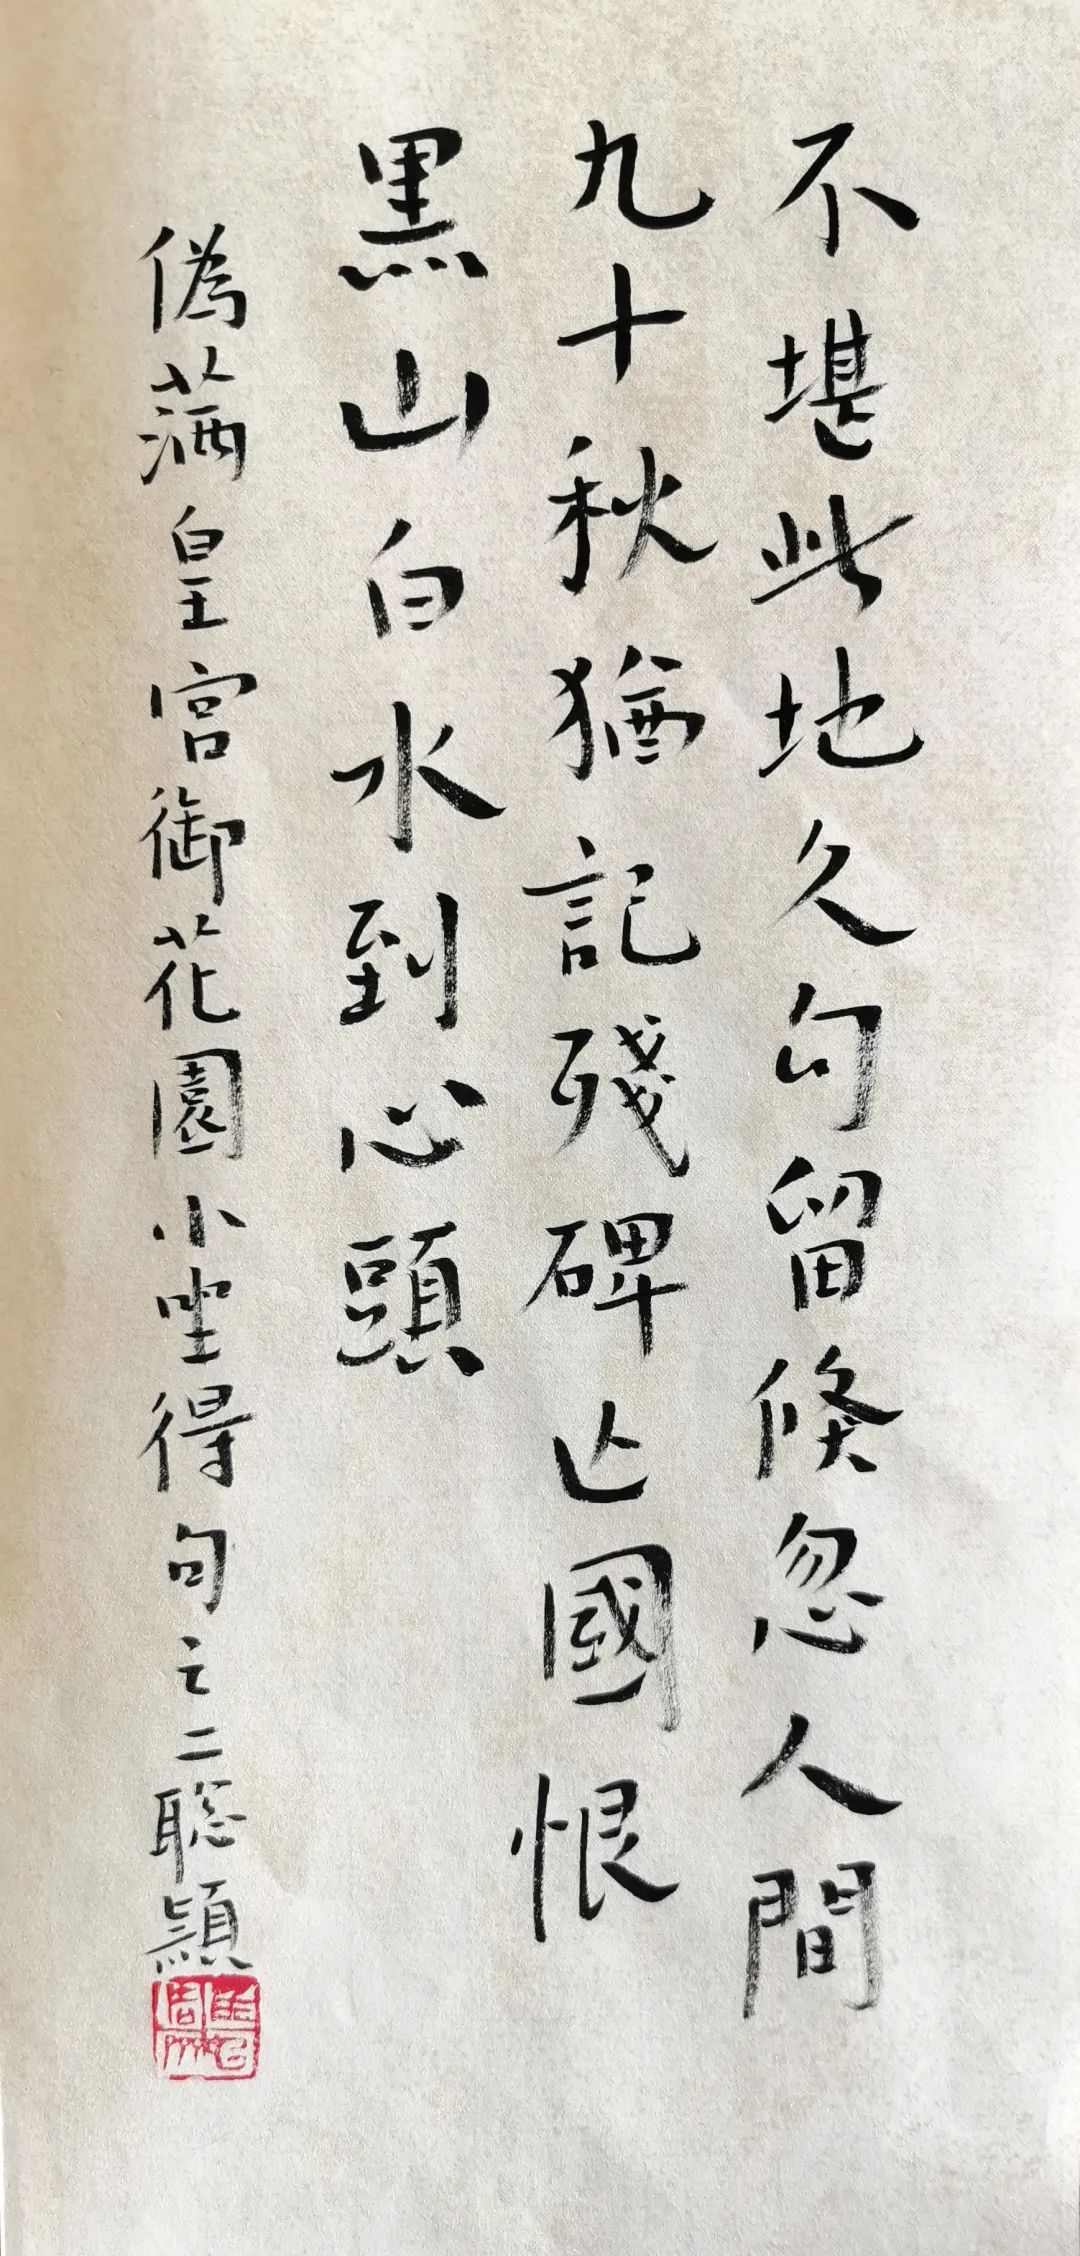 不堪此地久勾留倏忽人間
九十秋猶記殘碑亡國恨
黑山白水到心頭
偽满皇宮御花園小坐得句之二聪穎